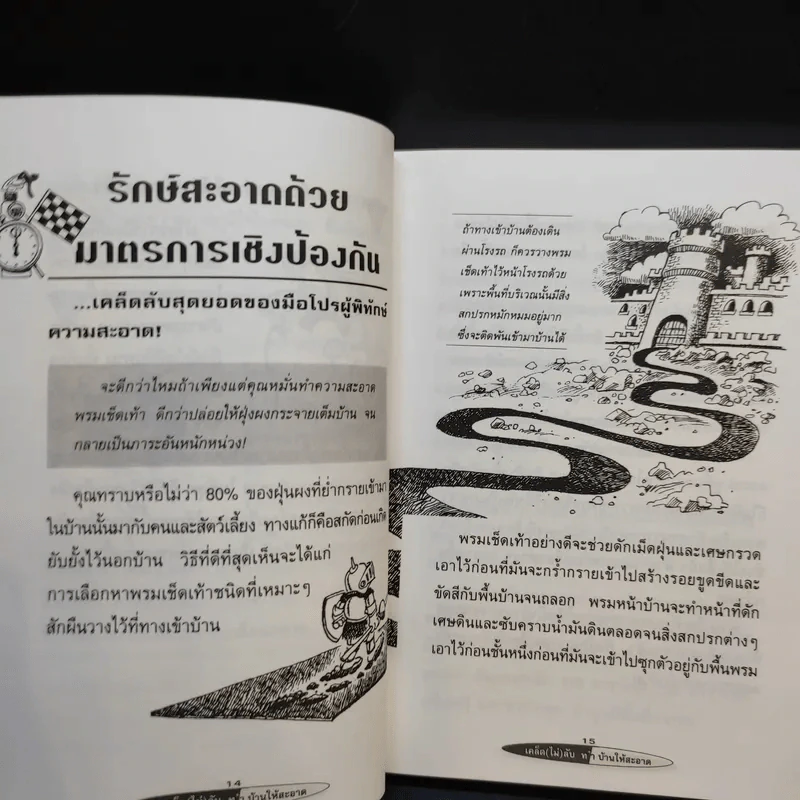 รักษ์สะอาดด้วย
มาตรการเชิงป้องกัน
...เคล็ดลับสุดยอดของมือโปรผู้พิทักษ์
ความสะอาด!
จะดีกว่าไหมถ้าเพียงแต่คุณหมั่นทำความสะอาด
พรมเช็ดเท้า ดีกว่าปล่อยให้ฝุ่งผงกระจายเต็มบ้าน จน
กลายเป็นภาระอันหนักหน่วง!
คุณทราบหรือไม่ว่า 80% ของฝุ่นผงที่ย่ำกรายเข้ามา
ในบ้านนั้นมากับคนและสัตว์เลี้ยง ทางแก้ก็คือสกัดก่อนเกิด
ยับยั้งไว้นอกบ้าน วิธีที่ดีที่สุดเห็นจะได้แก่
การเลือกหาพรมเช็ดเท้าชนิดที่เหมาะๆ
สักผืนวางไว้ที่ทางเข้าบ้าน
14
เคล็ด(ไม่)ลับ ทำ บ้านให้สะอาด
ถ้าทางเข้าบ้านต้องเดิน
ผ่านโรงรถ ก็ควรวางพรม
เช็ดเท้าไว้หน้าโรงรถด้วย
เพราะพื้นที่บริเวณนั้นมีสิ่ง
สกปรกหมักหมมอยู่มาก
ซึ่งจะติดพันเข้ามาบ้านได้
พรมเช็ดเท้าอย่างดีจะช่วยดักเม็ดฝุ่นและเศษกรวด
เอาไว้ก่อนที่มันจะกร้ำกรายเข้าไปสร้างรอยขูดขีดและ
ขัดสีกับพื้นบ้านจนถลอก พรมหน้าบ้านจะทำหน้าที่ดัก
เศษดินและซับคราบน้ำมันดินตลอดจนสิ่งสกปรกต่างๆ
เอาไว้ก่อนชั้นหนึ่งก่อนที่มันจะเข้าไปซุกตัวอยู่กับพื้นพรม
15
เคล็ด(ไม่)ลับ ทำ บ้านให้สะอาด